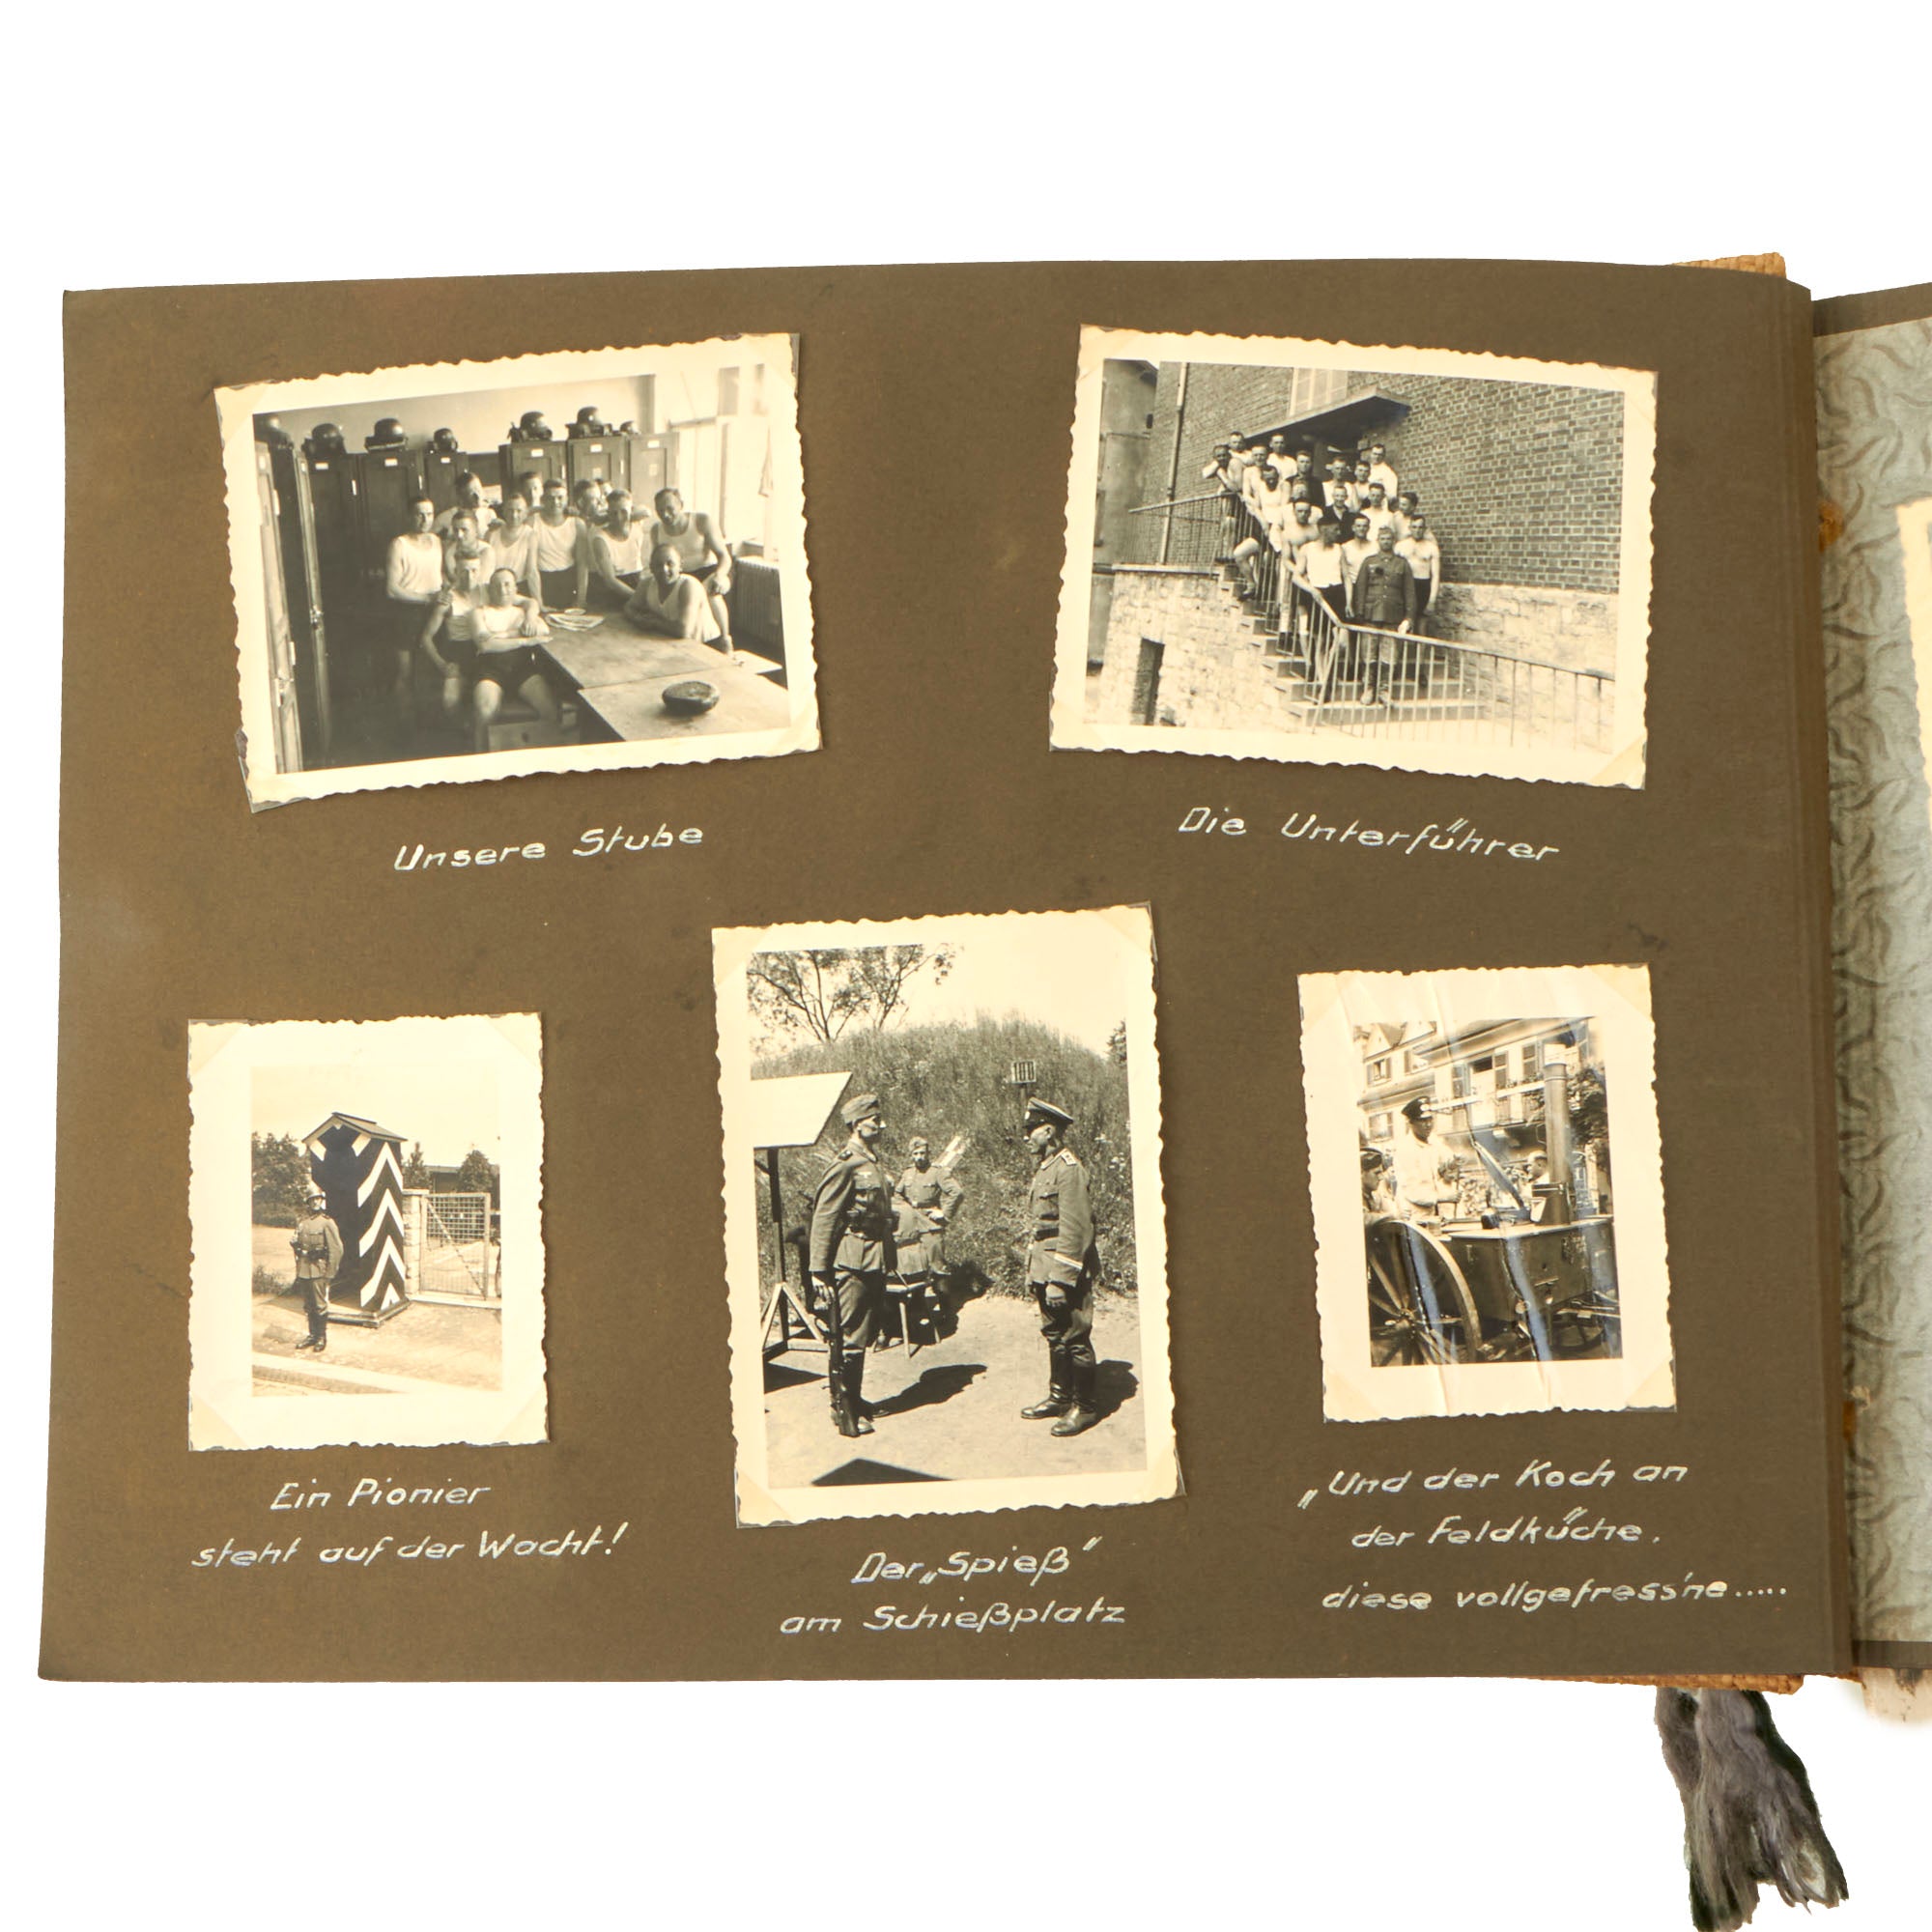 Unsere Stube
Die Unterführer
100
Ein Pionier
steht auf der Wacht!
Der „Spieß"
am Schießplatz
„Und der Koch an
der Feldküche,
diese vollgefress'ne.....